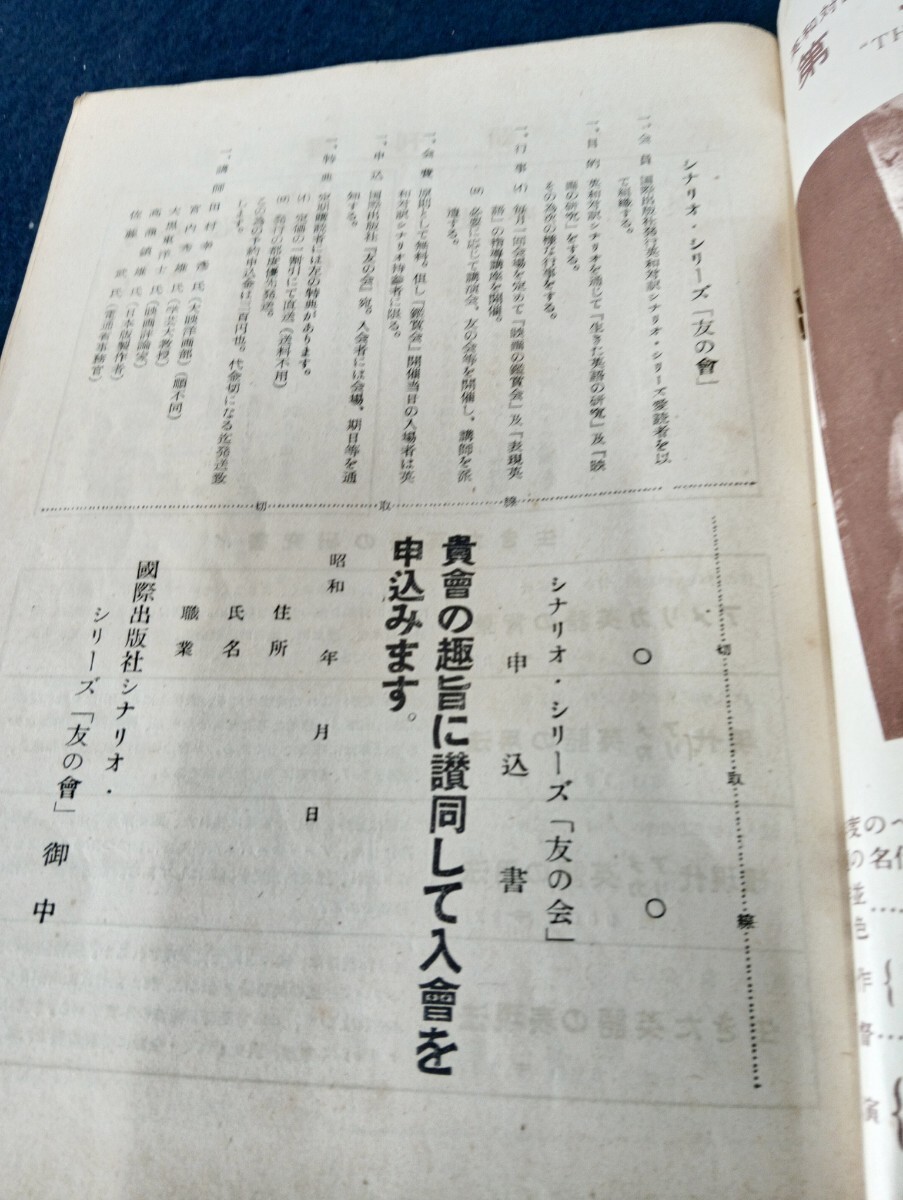 シナリオ・シリーズ「友の會」
一、会員 國際出版社発行英和対訳シナリオ・シリーズ愛読者を以
て組織する。
一、目的 英和対訳シナリオを通じて『生きた英語の研究』及『映
画の研究』をする。
その為次の様な行事をする。
一、行事 (イ) 毎月一回会場を定めて『映画の鑑賞会』及『表現英
語』の指導講座を開催。
(ロ) 必要に応じて講演会、友の会等を開催し、講師を派
遣する。
一、会費 原則として無料。但し『鑑賞会』開催当日の入場者は英
和対訳シナリオ持参者に限る。
一、申込 國際出版社『友の会』宛。入会者には会場、期日等を通
知する。
一、特典 定期購読者には左の特典があります。
(イ) 定価の一割引にて直送(送料不用)
(ロ) 発行の都度優先発送。
この為の予約申込金は三百円也。代金切になる迄発送致
します。
一、講師 田村幸彦氏(大映洋画部)(順不同)
宮内秀雄氏(学芸大教授)
大黒東洋士氏(映画評論家)
高瀬鎮雄氏(日本版製作者)
佐藤 武氏(電通省事務官)
切取線
切取線
シナリオ・シリーズ「友の会」
申込書
貴會の趣旨に讃同して入會を
申込みます。
昭和 年 月 日
住所
氏名
職業
國際出版社シナリオ・
シリーズ「友の會」御中
第